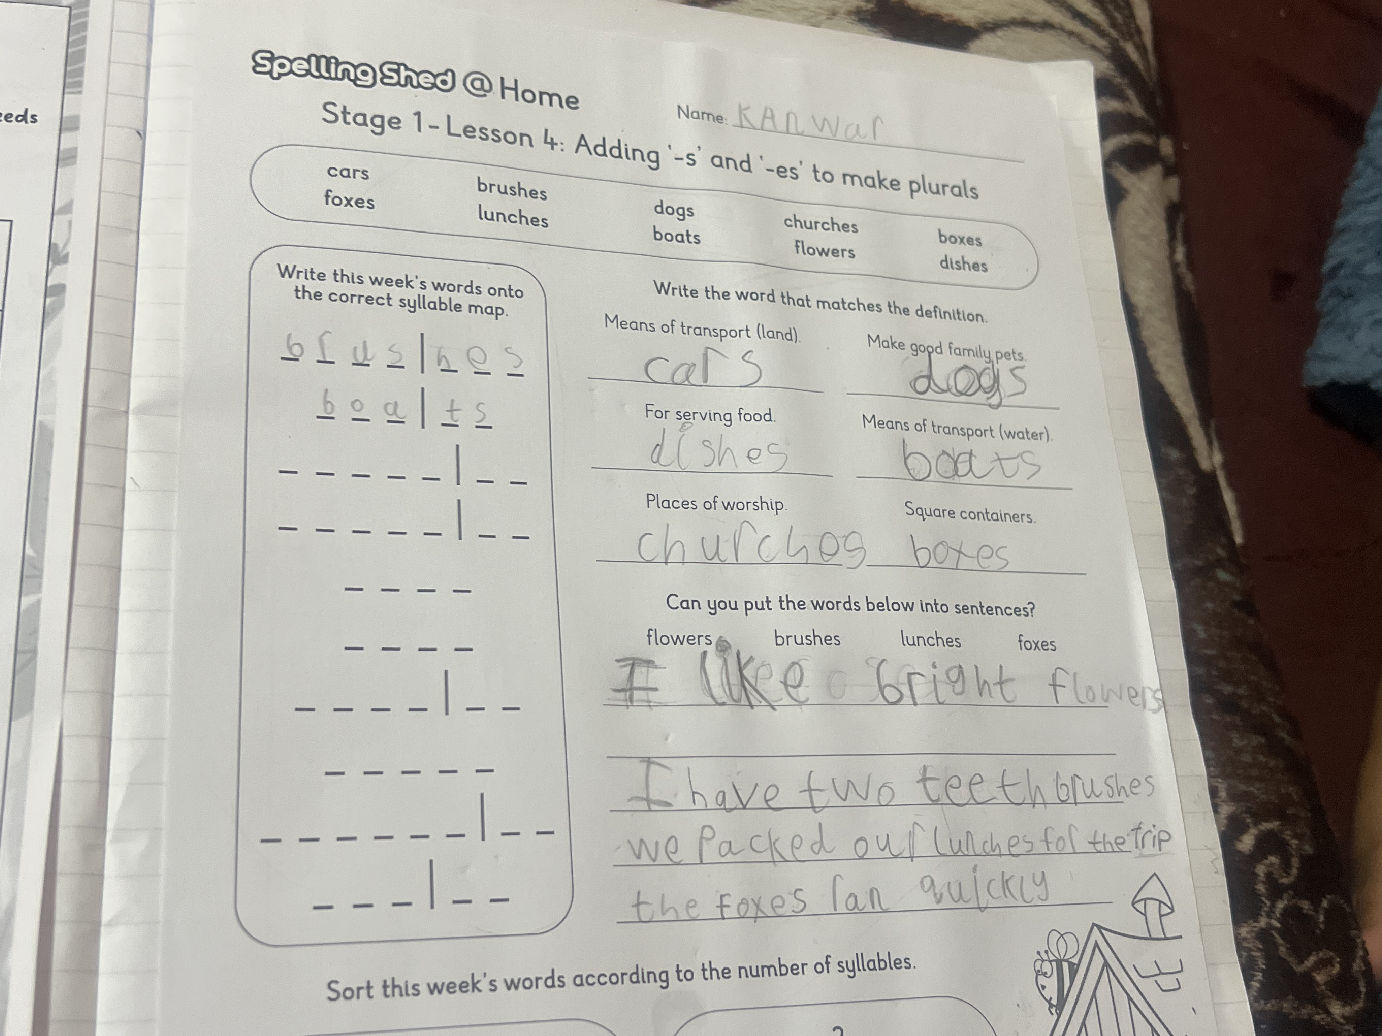 eeds
Spelling Shed @ Home
Name: KAnwar
Stage 1 - Lesson 4: Adding '-s' and '-es' to make plurals
cars brushes dogs churches boxes
foxes lunches boats flowers dishes
Write this week's words onto
the correct syllable map.
brus|hes
boa|ts
Write the word that matches the definition.
Means of transport (land).
cars
Make good family pets.
dogs
For serving food.
dishes
Means of transport (water).
boats
Places of worship.
churches
Square containers.
boxes
Can you put the words below into sentences?
flowers brushes lunches foxes
I like bright flowers
I have two teethbrushes
we Packed our lunches for the trip
the foxes ran quickly
Sort this week's words according to the number of syllables.